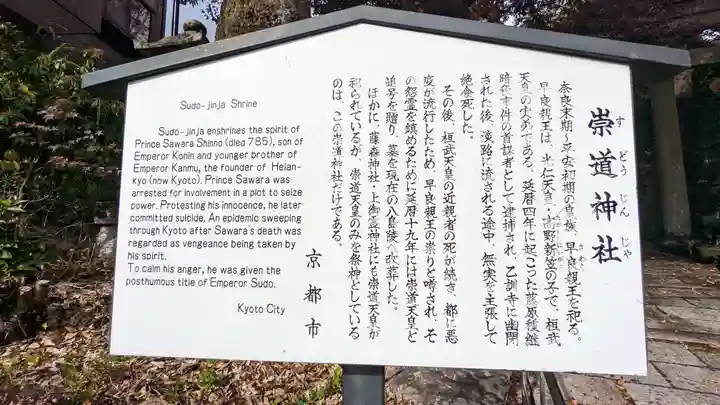 崇道神社
すどうじんじゃ
奈良末期～平安初期の皇族、早良親王を祀る。
さわら
早良親王は、光仁天皇・高野新笠の子で、桓武
天皇の実弟である。延暦四年に起こった藤原種継
暗殺事件の首謀者として逮捕され、乙訓寺に幽閉
された後、淡路に流される途中、無実を主張して
絶食死した。
その後、桓武天皇の近親者の死が続き、都に悪
疫が流行したため、早良親王の祟りと噂され、そ
の怨霊を鎮めるために延暦十九年には崇道天皇と
追号を贈り、墓を現在の八島陵へ改葬した。
ほかに、藤森神社・上御霊神社にも崇道天皇が
祀られているが、崇道天皇のみを祭神としている
のは、この崇道神社だけである。
京都市
Sudo-jinja Shrine
Sudo-jinja enshrines the spirit of
Prince Sawara Shinno (died 785), son of
Emperor Konin and younger brother of
Emperor Kanmu, the founder of Heian-
kyo (now Kyoto). Prince Sawara was
arrested for involvement in a plot to seize
power. Protesting his innocence, he later
committed suicide. An epidemic sweeping
through Kyoto after Sawara's death was
regarded as vengeance being taken by
his spirit.
To calm his anger, he was given the
posthumous title of Emperor Sudo.
Kyoto City